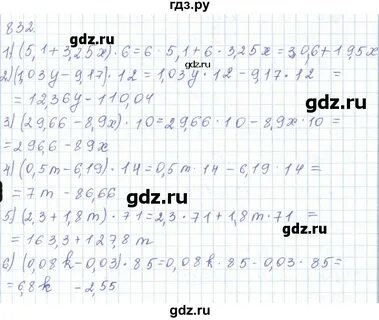 гдз.ру
832.
1) (5,1+3,25x)·6=6·5,1+6·3,25x=30,6+19,5x
2) (1,03y-9,17)·12=1,03y·12-9,17·12=
=12,36y-110,04
3) (29,66-8,9x)·10=29,66·10-8,9x·10=
=296,6-89x
gdz.ru
gdz.ru
4) (0,5m-6,19)·14=0,5m·14-6,19·14=
=7m-86,66
5) (2,3+1,8m)·71=2,3·71+1,8m·71=
=163,3+127,8m
gdz.ru
gdz.ru
6) (0,08k-0,03)·85=0,08k·85-0,03·85=
=6,8k-2,55
gdz.ru